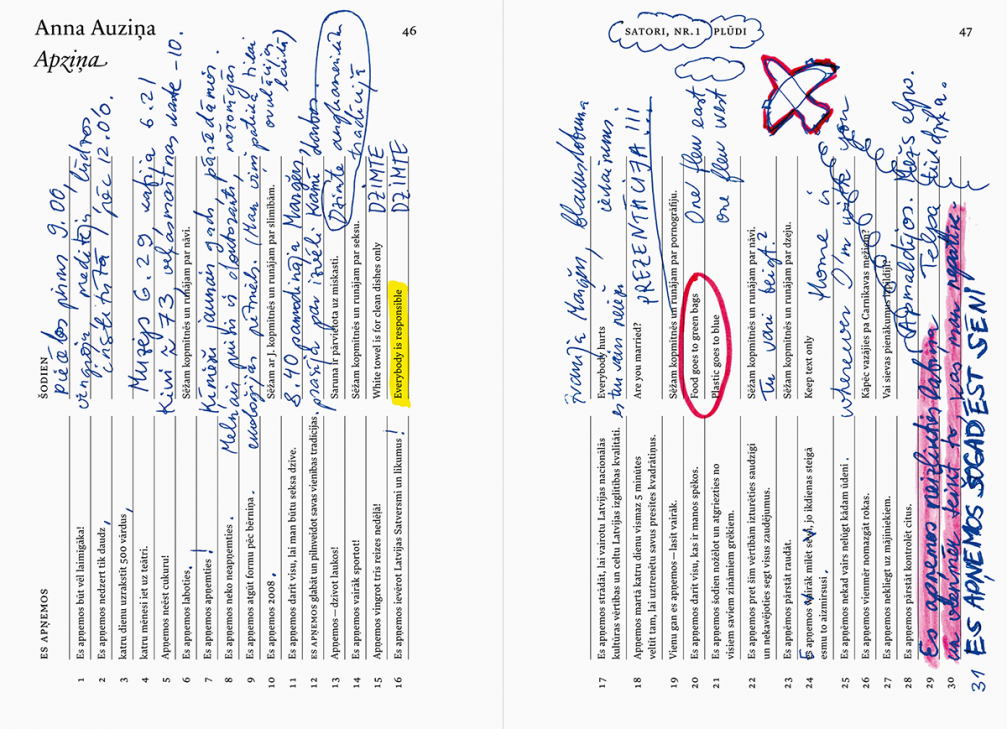 Anna Auziņa
Apziņa
46
ES APŅEMOS
ŠODIEN
1 Es apņemos būt vēl laimīgāka!
piecēlos pirms 9.00,
2 Es apņemos nedzert tik daudz,
vingroju, meditēju, līdzos
3 katru diemu uzrakstīt 500 vārdus,
institūtā / pēc 12.06.
4 katru mēnesi iet uz teātri.
5 Apņemos neēst cukuru!
6 Es apņemos laboties.
Sēžam kopmītnēs un runājam par nāvi.
7 Es apņemos apņemties!
8 Es apņemos neko neapņemties.
Melnais puisis ir doktorants,
9 Es apņemos atgūt formu pēc bērniņa.
10 Es apņemos 2008.
Sēžam ar J. kopmītnēs un runājam par slimībām.
11 Es apņemos darīt visu, lai man būtu seksa dzīve.
8.40 pamodināja Margēn,
12 ES APŅEMOS glabāt un pilnveidot savas vienības tradīcijas.
prasīja par izvēli Kamī darbos.
13 Apņemos—dzīvot laukos!
Saruna ir pārvietota uz miskasti.
Dzimte angloamerikāņu tradīcijā
14 Es apņemos vairāk sportot!
Sēžam kopmītnēs un runājam par seksu.
15 Apņemos vingrot trīs reizes nedēļā!
White towel is for clean dishes only
DZIMTE
16 Es apņemos ievērot Latvijas Satversmi un likumus!
Everybody is responsible
DZIMTE
SATORI, NR.1 PLŪDI
47
17 Es apņemos strādāt, lai vairotu Latvijas nacionālās
kultūras vērtības un celtu Latvijas izglītības kvalitāti.
Everybody hurts
18 Apņemos martā katru dienu vismaz 5 minūtes
veltīt tam, lai uztrenētu savus presītes kvadrātiņus.
Are you married?
PREZENTĀCIJA!!!
19 Vienu gan es apņemos—lasīt vairāk.
Sēžam kopmītnēs un runājam par pornogrāfiju.
20 Es apņemos darīt visu, kas ir manos spēkos.
Food goes to green bags
One flew east
21 Es apņemos šodien nožēlot un atgriezties no
visiem saviem zināmiem grēkiem.
Plastic goes to blue
one flew west
22 Es apņemos pret šīm vērtībām izturēties saudzīgi
un nekavējoties segt visus zaudējumus.
Sēžam kopmītnēs un runājam par nāvi.
Tu vari beigt?
23 Es apņēmos pārstāt raudāt.
Sēžam kopmītnēs un runājam par dzeju.
24 Es apņemos vairāk mīlēt sevi, jo ikdienas steigā
esmu to aizmirsusi.
Keep text only
Home is
25 Es apņēmos nekad vairs nelūgt kādam ūdeni.
wherever I'm with you
26 Es apņemos vienmēr nomazgāt rokas.
Kāpēc vazājies pa Carnikavas mežiem?
27 Es apņemos nekliegt uz mājiniekiem.
Vai sievas pienākumus izpildīji?
28 Es apņemos pārstāt kontrolēt citus.
Apmaldījos. Mežs elpo.
29 Es apņemos neizlikties labāka
30 un vienmēr teikt to, kas man nepatīk.
31 ES APŅEMOS ŠOGAD ĒST SĒNI